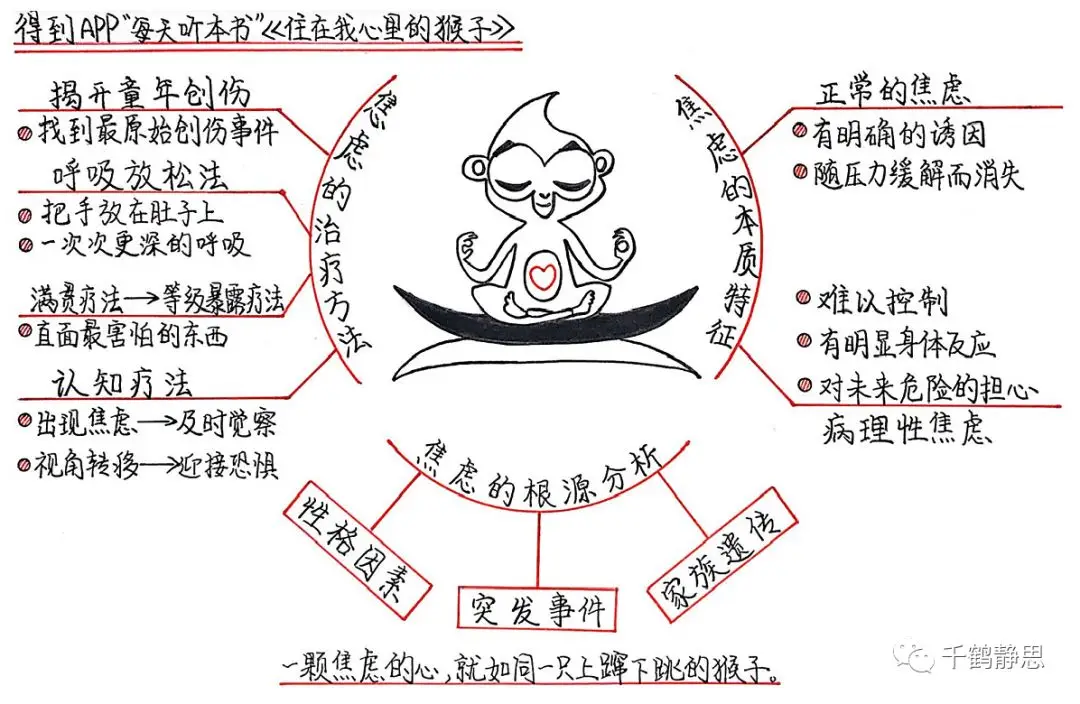 得到APP“每天听本书”《住在我心里的猴子》
焦虑的治疗方法
揭开童年创伤
找到最原始创伤事件
呼吸放松法
把手放在肚子上
一次次更深的呼吸
满贯疗法→等级暴露疗法
直面最害怕的东西
认知疗法
出现焦虑→及时觉察
视角转移→迎接恐惧
焦虑的本质特征
正常的焦虑
有明确的诱因
随压力缓解而消失
难以控制
有明显身体反应
对未来危险的担心
病理性焦虑
焦虑的根源分析
性格因素
突发事件
家族遗传
一颗焦虑的心,就如同一只上蹿下跳的猴子。
千鹤静思